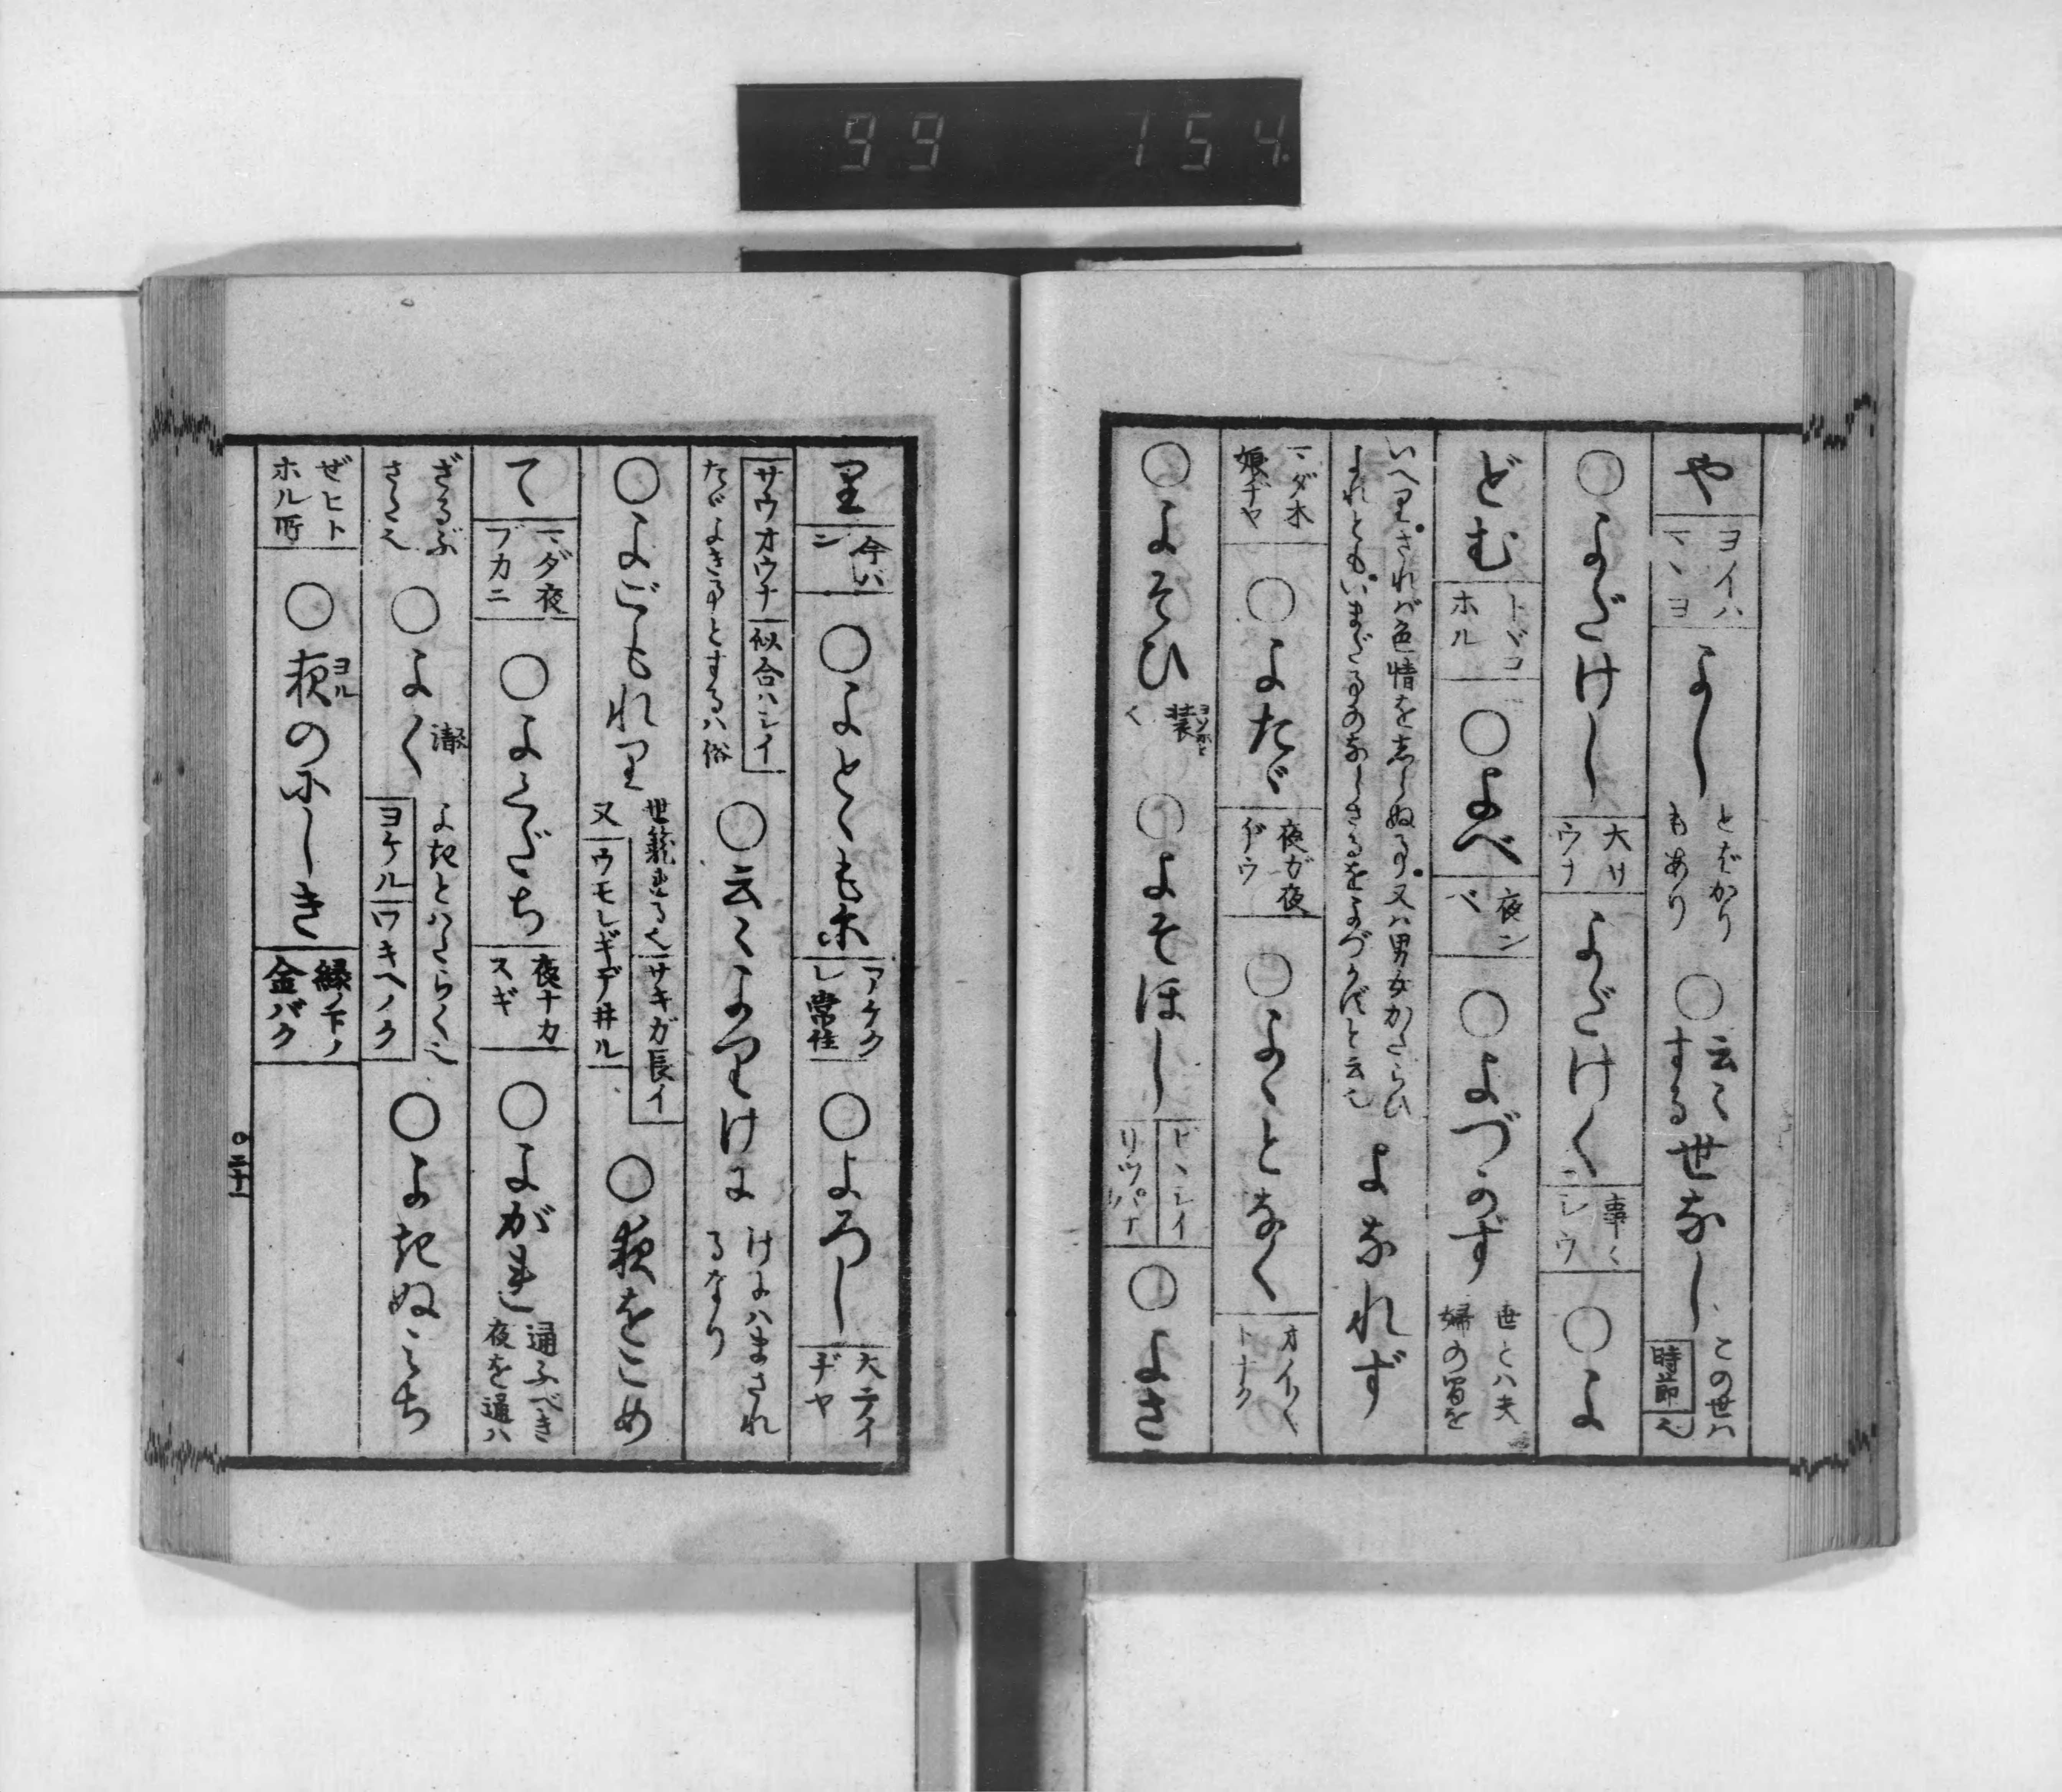 99 754
や ヨイハ マヽヨ よし とばかり もあり ○云々する世なし この世ハ 時節也
○よだけし 大サウナ よだけく 事々シウ ○よ
どむ トヾコホル ○よべ 夜ンベ ○よづかず 世とハ夫婦の間を
いへり。されバ色情をしらぬ事。又ハ男女かたらひ よれとも。いまだ事のなしさるをよづかずと云也 よなれず
マダ木娘ヂヤ ○よたゞ 夜ガ夜ヂウ ○よゝとなく オイ〱トナク
○よそひ 装 ○よそほし ビヽシイ リツパナ ○よさ
り 今ハン ○よとゝもに アケクレ 常住 ○よろし 大テイヂヤ
サウオウナ 似合ハシイ たゞよき事とするハ俗 ○云々よりけに けにハまされるなり
○よごもれり 世籠れる也 サキガ長イ 又 ウモレギデ井ル ○夜をこめ
て マダ夜ブカニ ○よくだち 夜ナカスギ ○よがれ 通ふべき夜を通ハ
ざるぶさた也 ○よく よきとハたらく也 ヨケル ワキヘノク ○よきぬみち
ぜヒトホル所 ○夜のにしき 縁ノ下ノ金バク
○二十一